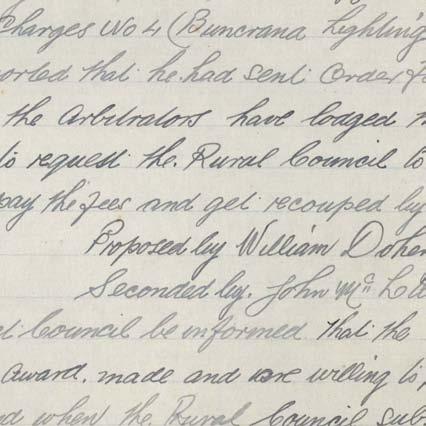 Charges No 4 (Buncrana Lighting
orted that he had sent order
the Arbitrators have lodged
to request the Rural Council to
pay the fees and get recouped by
Proposed by William Doher
Seconded by. John Mc
Council be informed that the
award. made and are willing to
when the Rural Council sub